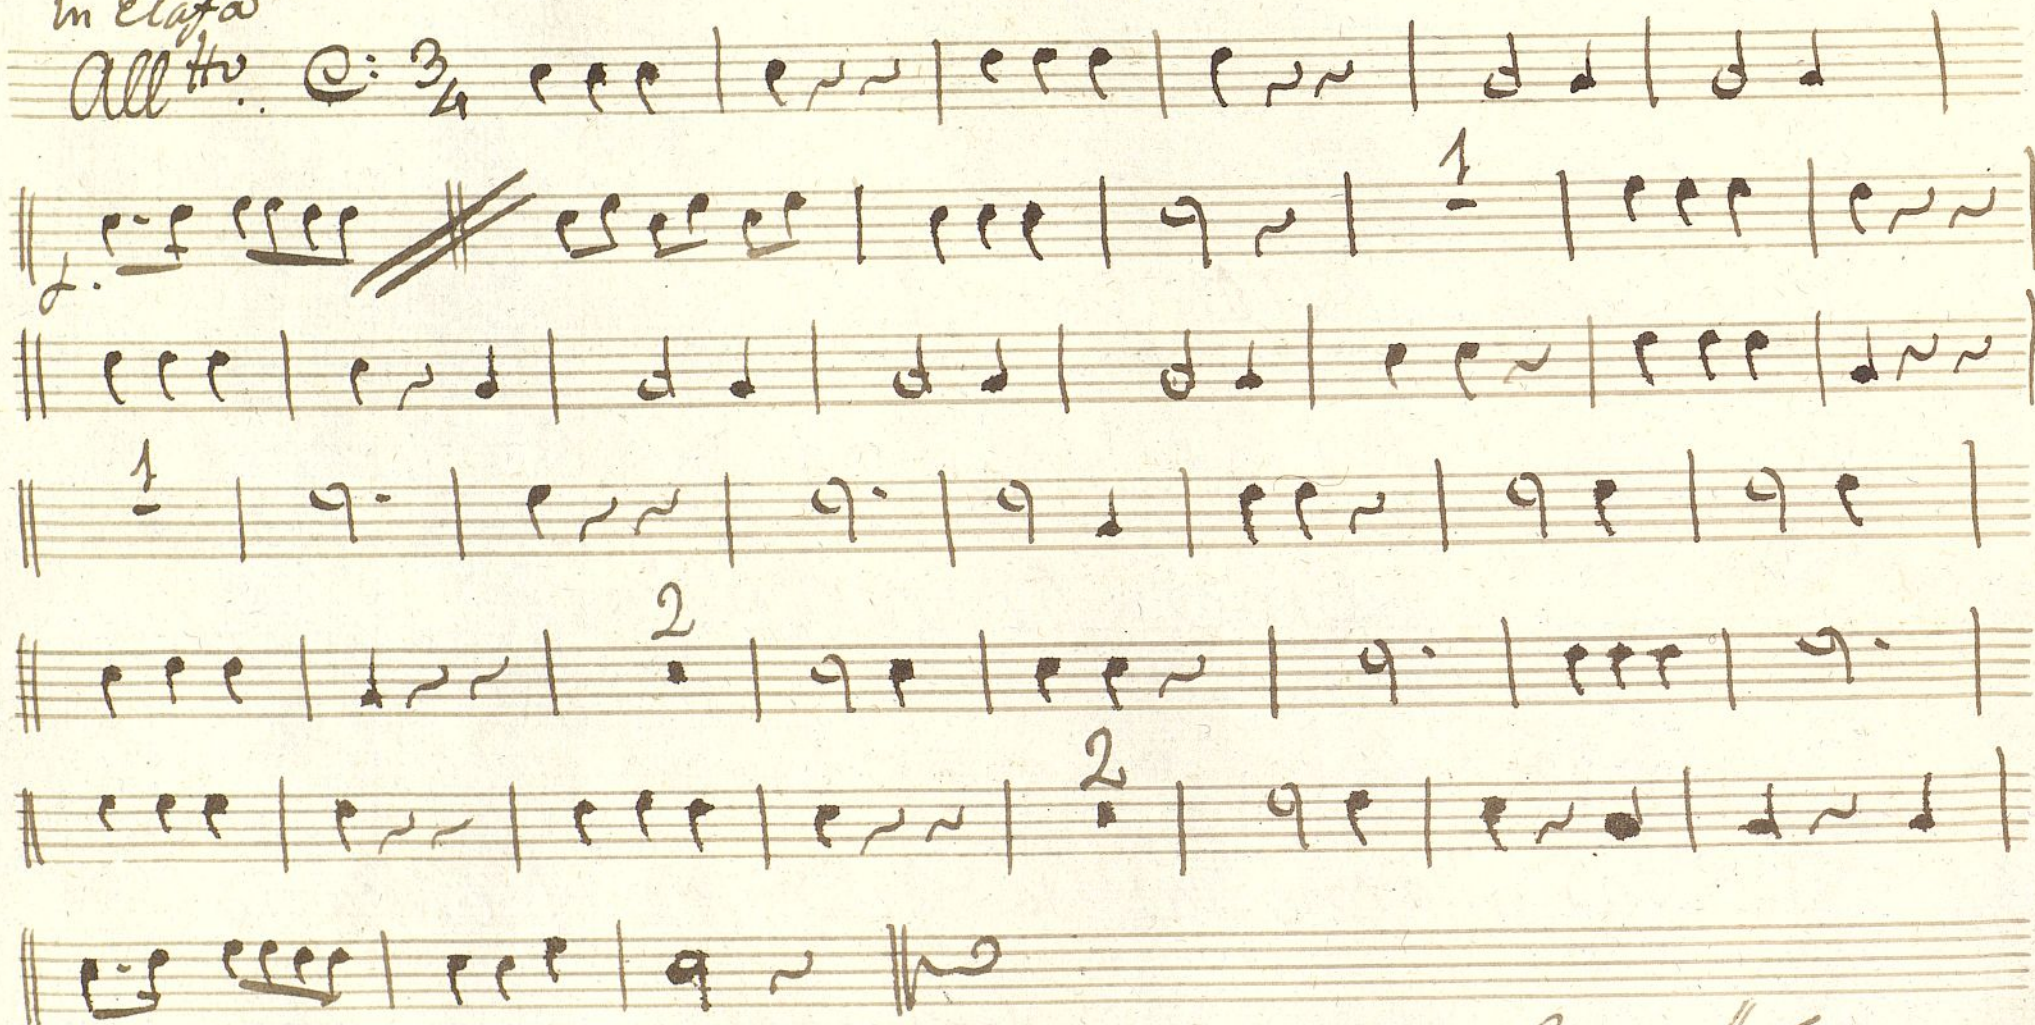 in elafa
All tto. C: 3/4
1
f.
1
2
2